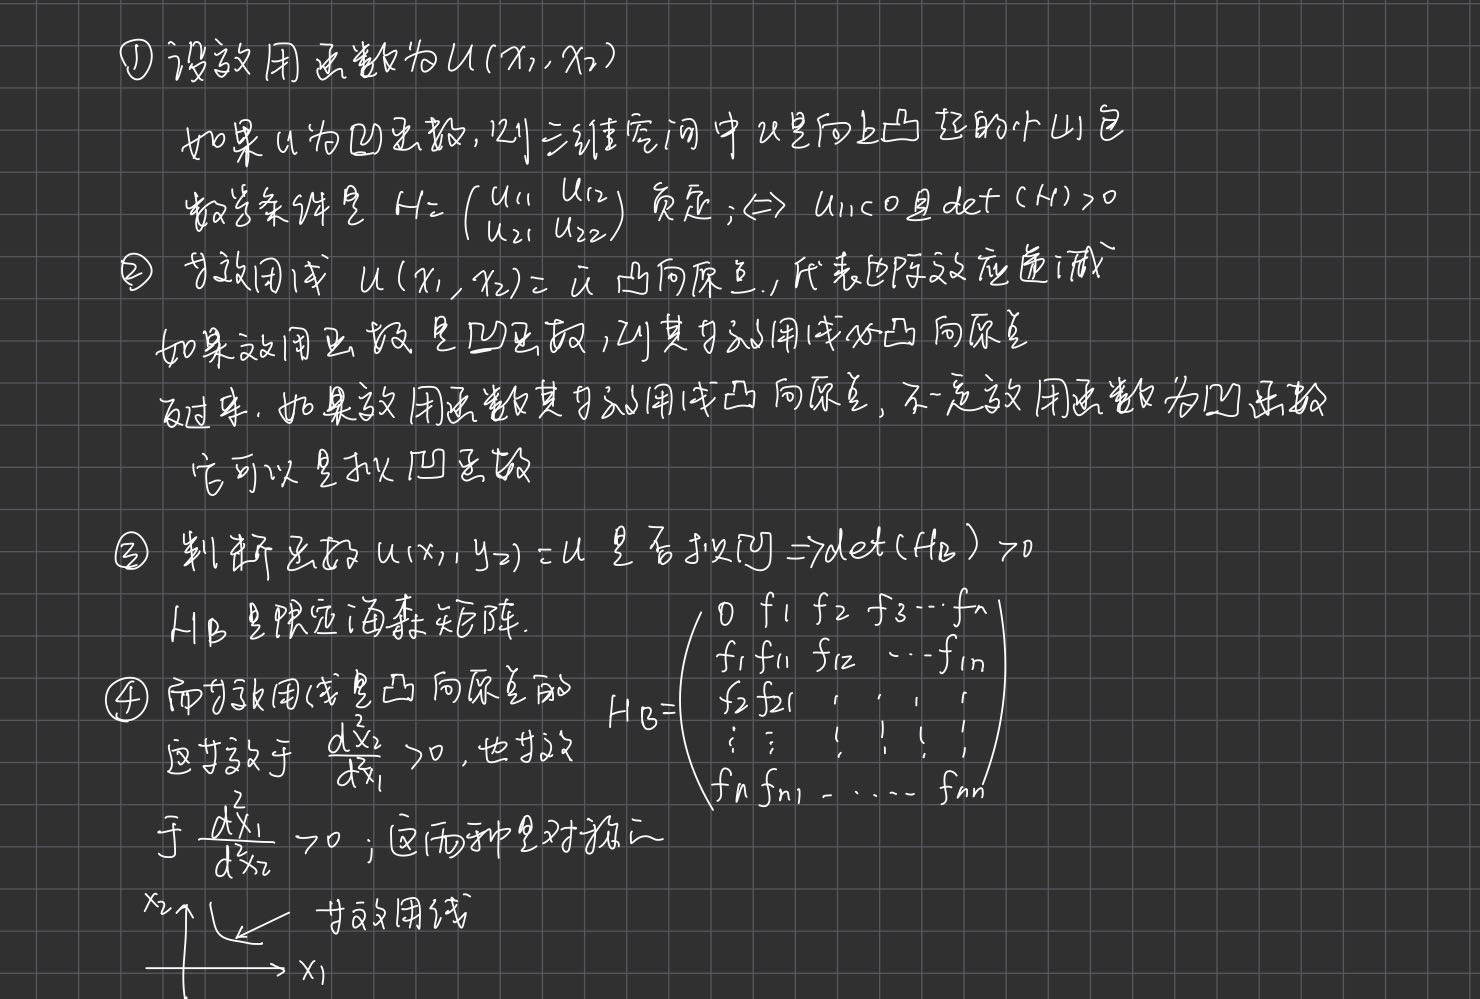 ① 设效用函数为 U(x₁, x₂)
如果 U 为凹函数, 则三维空间中 U 是向上凸起的小山包
数学条件是 H = (U₁₁ U₁₂
U₂₁ U₂₂) 负定; ⟺ U₁₁<0 且 det(H)>0
② 等效用线 U(x₁, x₂) = ū 凸向原点, 代表边际效应递减
如果效用函数是凹函数, 则其等效用线必凸向原点
反过来. 如果效用函数其等效用线凸向原点, 不一定效用函数为凹函数
它可以是拟凹函数
③ 判断函数 u(x₁, y₂) = u 是否拟凹 ⇒ det(H_B) > 0
H_B 是限定海森矩阵.
H_B = (0 f₁ f₂ f₃ … fₙ
f₁ f₁₁ f₁₂ … f₁ₙ
f₂ f₂₁ ⋮ ⋮ ⋮ ⋮
⋮ ⋮ ⋮ ⋮ ⋮ ⋮
fₙ fₙ₁ - ….. fₙₙ)
④ 而等效用线是凸向原点的
这等效于 d²x₂/d²x₁ > 0, 也等效
于 d²x₁/d²x₂ > 0; 这两种是对称
x₂
等效用线
x₁